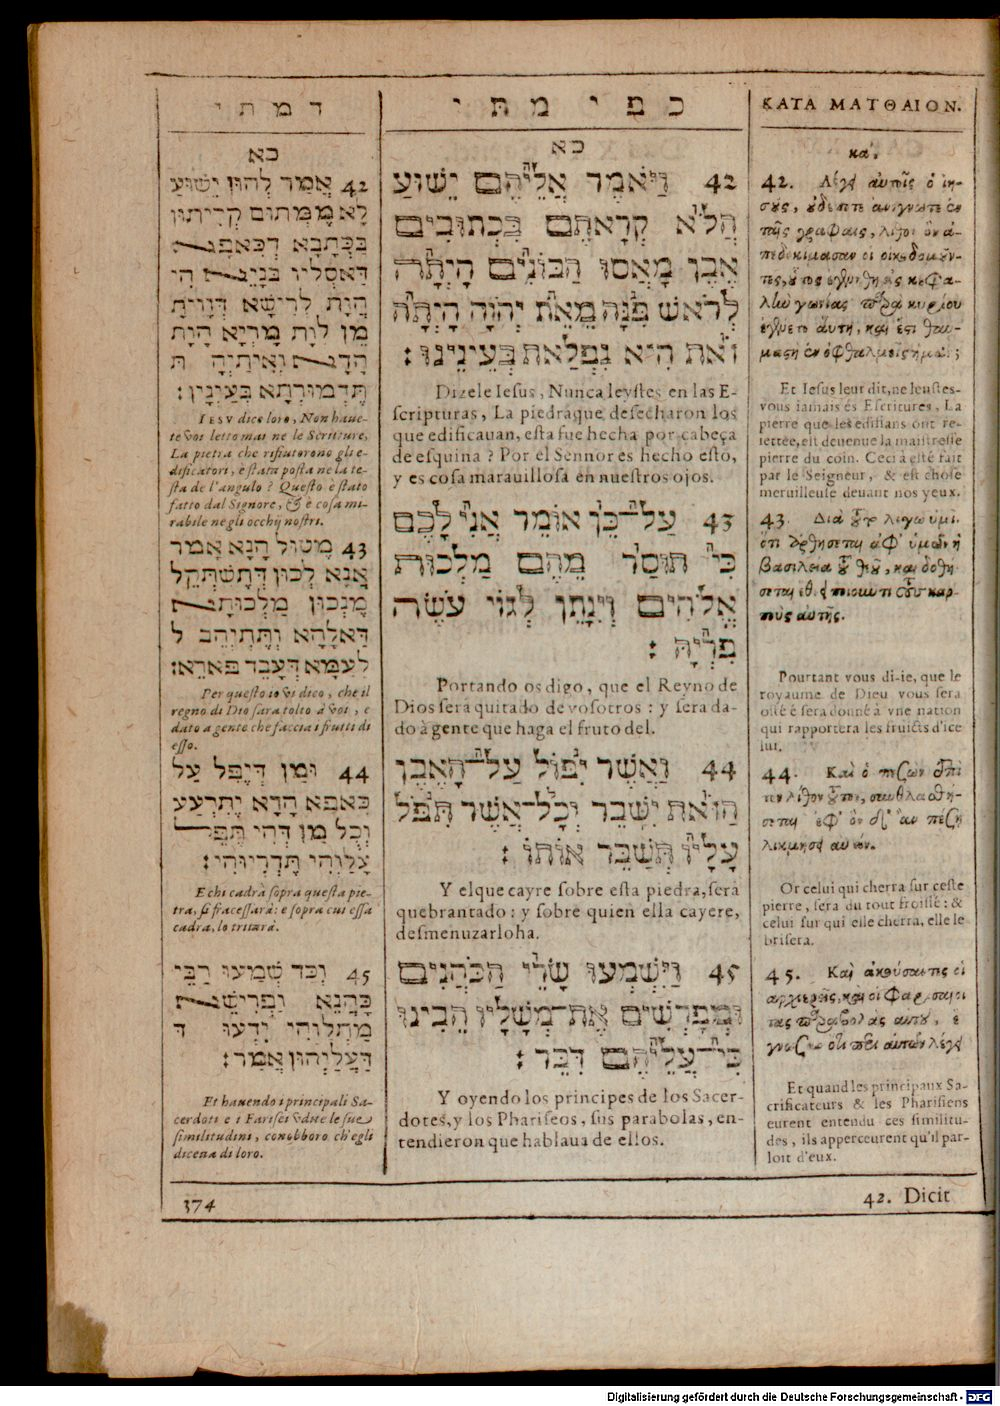 ד מ ת י
כא
42 אֲמַר לְהוּן יֵשׁוּעַ
לָא מִמְּתוּם קְרֵיתוּן
בַּכְּתָבָא דְּכֵאפָא
דְּאַסְלִיו בַּנָּיֵא הִי
הֲוָת לְרֵישָׁא דְּזָוִיתָא
מֵן לְוָת מָרְיָא הֲוָת
הָדֵא וְאִיתֵיהּ תּ
תֶּדְמוּרְתָּא בְּעַיְנַיִן :
IESV dice loro, Non haue-
te voi letto mai ne le Scritture,
La pietra che rifiutorono gli e-
dificatori, è stata posta ne la te-
sta de l'angulo? Questo è stato
fatto dal Signore, & è cosa mi-
rabile negli occhij nostri.
43 מֶטֻּול הָנָא אָמַר
אֲנָא לְכוּן דְּתֶשְׁתְּקֵל
מֶנְכוּן מַלְכּוּתָא
דַּאלָהָא וְתֶתְיְהֵב ל
לְעַמָּא דְּעָבֵד פֵּארֵא:
Per questo io vi dico, che il
regno di Dio sara tolto à voi, e
dato a gente che faccia i frutti di
esso.
44 וּמַן דְּיִפֵּל עַל
כֵּאפָא הָדֵא יֶתְרְעַע
וְכָל מַן דְּהִי תֶּפֵּל
עֲלָוְהִי תֶּדְרֵיוְהִי :
E chi cadrà sopra questa pie-
tra, si fracessarà: e sopra cui essa
cadra, lo tritarà.
45 וְכַד שְׁמַעוּ רַבַּי
כָּהֲנֵא וַפְרִישֵׁא
מַתְלָוְהִי יִדַעוּ ד
דַּעֲלַיְהוּן אֲמַר :
Et hauendo i principali Sa-
cerdoti e i Farisei vdite le sue
similitudini, conobbero ch'egli
dicena di loro.
כ פ י מ ת י
כא
42 וַיֹּאמֶר אֲלֵיהֶם יֵשׁוּעַ
הֲלֹא קְרָאתֶם בַּכְּתוּבִים
אֶבֶן מָאֲסוּ הַבּוֹנִים הָיְתָה
לְרֹאשׁ פִּנָּה מֵאֵת יְהוָֹה הָיְתָה
זֹאת הִיא נִפְלָאת בְּעֵינֵינוּ :
Dizele Iesus, Nunca leystes en las E-
scripturas, La piedra que desecharon los
que edificauan, esta fue hecha por cabeça
de esquina? Por el Sennor es hecho esto,
y es cosa marauillosa en nuestros ojos.
43 עַל־כֵּן אוֹמֵר אֲנִי לָכֶם
כִּי תוּסַר מֵהֶם מַלְכוּת
אֱלֹהִים וְיִנָּתֵן לְגוֹי עֹשֶׂה
פִרְיָהּ :
Portando os digo, que el Reyno de
Dios sera quitado de vosotros: y sera da-
do à gente que haga el fruto del.
44 וַאֲשֶׁר יִפּוֹל עַל־הָאֶבֶן
הַזֹּאת יִשָּׁבֵר וְכָל־אֲשֶׁר תִּפֹּל
עָלָיו תְּשַׁבֵּר אוֹתוֹ :
Y elque cayre sobre esta piedra, será
quebrantado: y sobre quien ella cayere,
desmenuzarloha.
45 וַיִּשְׁמְעוּ שָׂרֵי הַכֹּהֲנִים
וּמְפָרְשִׁים אֶת־מְשָׁלָיו הֵבִינוּ
כִּי־עֲלֵיהֶם דִּבֵּר :
Y oyendo los principes de los Sacer-
dotes, y los Phariseos, sus parabolas, en-
tendieron que hablaua de ellos.
ΚΑΤΑ ΜΑΤΘΑΙΟΝ.
κα'.
42. Λέγει αὐτοῖς ὁ ἰη-
σοῦς, οὐδέποτε ἀνέγνωτε ἐν
ταῖς γραφαῖς, λίθον ὃν ἀ-
πεδοκίμασαν οἱ οἰκοδομοῦν-
τες, οὗτος ἐγενήθη εἰς κεφα-
λὴν γωνίας παρὰ κυρίου
ἐγένετο αὕτη, καὶ ἔστι θαυ-
μαστὴ ἐν ὀφθαλμοῖς ἡμῶν;
Et Iesus leur dit, ne leustes-
vous iamais és Escritures, La
pierre que les edifians ont re-
iettée, est deuenue la maistresse
pierre du coin. Ceci a esté fait
par le Seigneur, & est chose
merueilleuse deuant nos yeux.
43. Διὰ τοῦτο λέγω ὑμῖν
ὅτι ἀρθήσεται ἀφ' ὑμῶν ἡ
βασιλεία τοῦ θεοῦ, καὶ δοθή
σεται ἔθνει ποιοῦντι τοὺς καρ-
ποὺς αὐτῆς.
Pourtant vous di-ie, que le
royaume de Dieu vous sera
osté é sera donné à vne nation
qui rapportera les fruicts d'ice
lui.
44. Καὶ ὁ πεσὼν ἐπὶ
τὸν λίθον τοῦτον, συνθλασθή-
σεται ἐφ' ὃν δ' ἂν πέσῃ
λικμήσει αὐτόν.
Or celui qui cherra sur ceste
pierre, sera du tout froissé: &
celui sur qui elle cherra, elle le
brisera.
45. Καὶ ἀκούσαντες οἱ
ἀρχιερεῖς, καὶ οἱ Φαρισαῖοι
τὰς παραβολὰς αὐτοῦ, ἔ
γνωσαν ὅτι περὶ αὐτῶν λέγει
Et quand les principaux Sa-
crificateurs & les Pharisiens
eurent entendu ces similitu-
des, ils apperceurent qu'il par-
loit d'eux.
374
42. Dicit
Digitalisierung gefördert durch die Deutsche Forschungsgemeinschaft - DFG